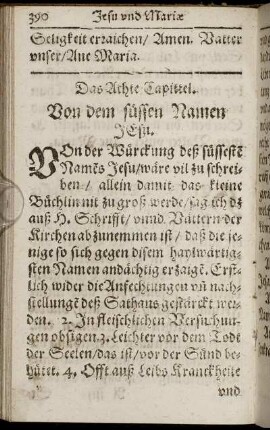 390 Jesu vnd Mariæ
Seligkeit erzaichen/ Amen. Vatter
vnser/ Aue Maria.
Das Achte Capittel.
Von dem süssen Namen
JEsu.
VOn der Würckung deß süssestē
Namēs Jesu/ wäre vil zu schrei-
ben/ allein damit das kleine
Büchlin nit zu groß werde/ sag ich dz
auß H. Schrifft/ vnnd Vättern der
Kirchen abzunemmen ist/ daß die je-
nige so sich gegen disem hayzwärtig-
sten Namen andächtig erzaigē. Erst-
lich wider die Anfechtungen vñ nach-
stellungē deß Sathans gestärckt wer-
den. 2. In fleischlichen Versuchun-
gen obsigen 3. Leichter vor dem Todt
der Seelen/ das ist/ vor der Sünd be-
hütet. 4. Offt auß Leibs Kranckheit
vnd